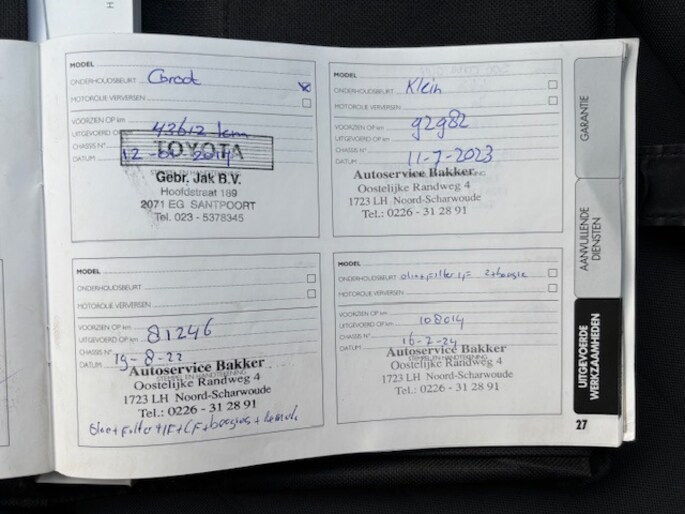 MODEL
ONDERHOUDSBEURT Groot
MOTOROLIE VERVERSEN
VOORZIEN OP km
UITGEVOERD OP km 43612 km
CHASSIS N°
DATUM 2014
TOYOTA
Gebr. Jak B.V.
Hoofdstraat 189
2071 EG SANTPOORT
Tel. 023 - 5378345
MODEL
ONDERHOUDSBEURT Klein
MOTOROLIE VERVERSEN
VOORZIEN OP km
UITGEVOERD OP km 92982
CHASSIS N°
DATUM 11-7-2023
Autoservice Bakker
Oostelijke Randweg 4
1723 LH Noord-Scharwoude
Tel.: 0226 - 31 28 91
MODEL
ONDERHOUDSBEURT
MOTOROLIE VERVERSEN
VOORZIEN OP km
UITGEVOERD OP km 81246
CHASSIS N°
DATUM 19-8-22
Autoservice Bakker
STEMPEL EN HANDTEKENING
Oostelijke Randweg 4
1723 LH Noord-Scharwoude
Tel.: 0226 - 31 28 91
Olie+filter+IF+CF+bougies+
MODEL
ONDERHOUDSBEURT olie+filter
MOTOROLIE VERVERSEN
VOORZIEN OP km
UITGEVOERD OP km 108014
CHASSIS N°
DATUM 16-2-24
Autoservice Bakker
Oostelijke Randweg 4
1723 LH Noord-Scharwoude
Tel.: 0226 - 31 28 91
GARANTIE
AANVULLENDE
DIENSTEN
UITGEVOERDE
WERKZAAMHEDEN
27